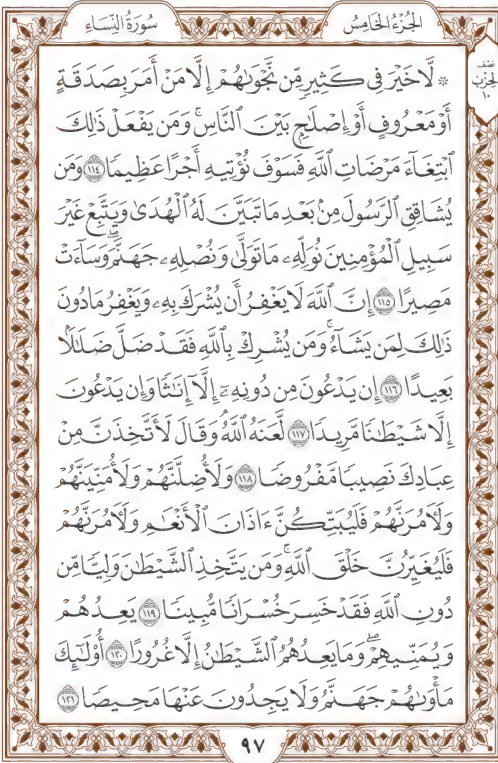 سُورَةُ النِّسَاءِ
الجُزْءُ الخَامِسُ
نصف
الحزب
١٠
۞ لَّا خَيْرَ فِى كَثِيرٍ مِّن نَّجْوَىٰهُمْ إِلَّا مَنْ أَمَرَ بِصَدَقَةٍ
أَوْ مَعْرُوفٍ أَوْ إِصْلَٰحٍۭ بَيْنَ ٱلنَّاسِۚ وَمَن يَفْعَلْ ذَٰلِكَ
ٱبْتِغَآءَ مَرْضَاتِ ٱللَّهِ فَسَوْفَ نُؤْتِيهِ أَجْرًا عَظِيمًا ١١٤ وَمَن
يُشَاقِقِ ٱلرَّسُولَ مِنۢ بَعْدِ مَا تَبَيَّنَ لَهُ ٱلْهُدَىٰ وَيَتَّبِعْ غَيْرَ
سَبِيلِ ٱلْمُؤْمِنِينَ نُوَلِّهِۦ مَا تَوَلَّىٰ وَنُصْلِهِۦ جَهَنَّمَۖ وَسَآءَتْ
مَصِيرًا ١١٥ إِنَّ ٱللَّهَ لَا يَغْفِرُ أَن يُشْرَكَ بِهِۦ وَيَغْفِرُ مَا دُونَ
ذَٰلِكَ لِمَن يَشَآءُۚ وَمَن يُشْرِكْ بِٱللَّهِ فَقَدْ ضَلَّ ضَلَٰلًۢا
بَعِيدًا ١١٦ إِن يَدْعُونَ مِن دُونِهِۦٓ إِلَّآ إِنَٰثًا وَإِن يَدْعُونَ
إِلَّا شَيْطَٰنًا مَّرِيدًا ١١٧ لَّعَنَهُ ٱللَّهُۘ وَقَالَ لَأَتَّخِذَنَّ مِنْ
عِبَادِكَ نَصِيبًا مَّفْرُوضًا ١١٨ وَلَأُضِلَّنَّهُمْ وَلَأُمَنِّيَنَّهُمْ
وَلَءَامُرَنَّهُمْ فَلَيُبَتِّكُنَّ ءَاذَانَ ٱلْأَنْعَٰمِ وَلَءَامُرَنَّهُمْ
فَلَيُغَيِّرُنَّ خَلْقَ ٱللَّهِۚ وَمَن يَتَّخِذِ ٱلشَّيْطَٰنَ وَلِيًّا مِّن
دُونِ ٱللَّهِ فَقَدْ خَسِرَ خُسْرَانًا مُّبِينًا ١١٩ يَعِدُهُمْ
وَيُمَنِّيهِمْۖ وَمَا يَعِدُهُمُ ٱلشَّيْطَٰنُ إِلَّا غُرُورًا ١٢٠ أُو۟لَٰٓئِكَ
مَأْوَىٰهُمْ جَهَنَّمُ وَلَا يَجِدُونَ عَنْهَا مَحِيصًا ١٢١
٩٧